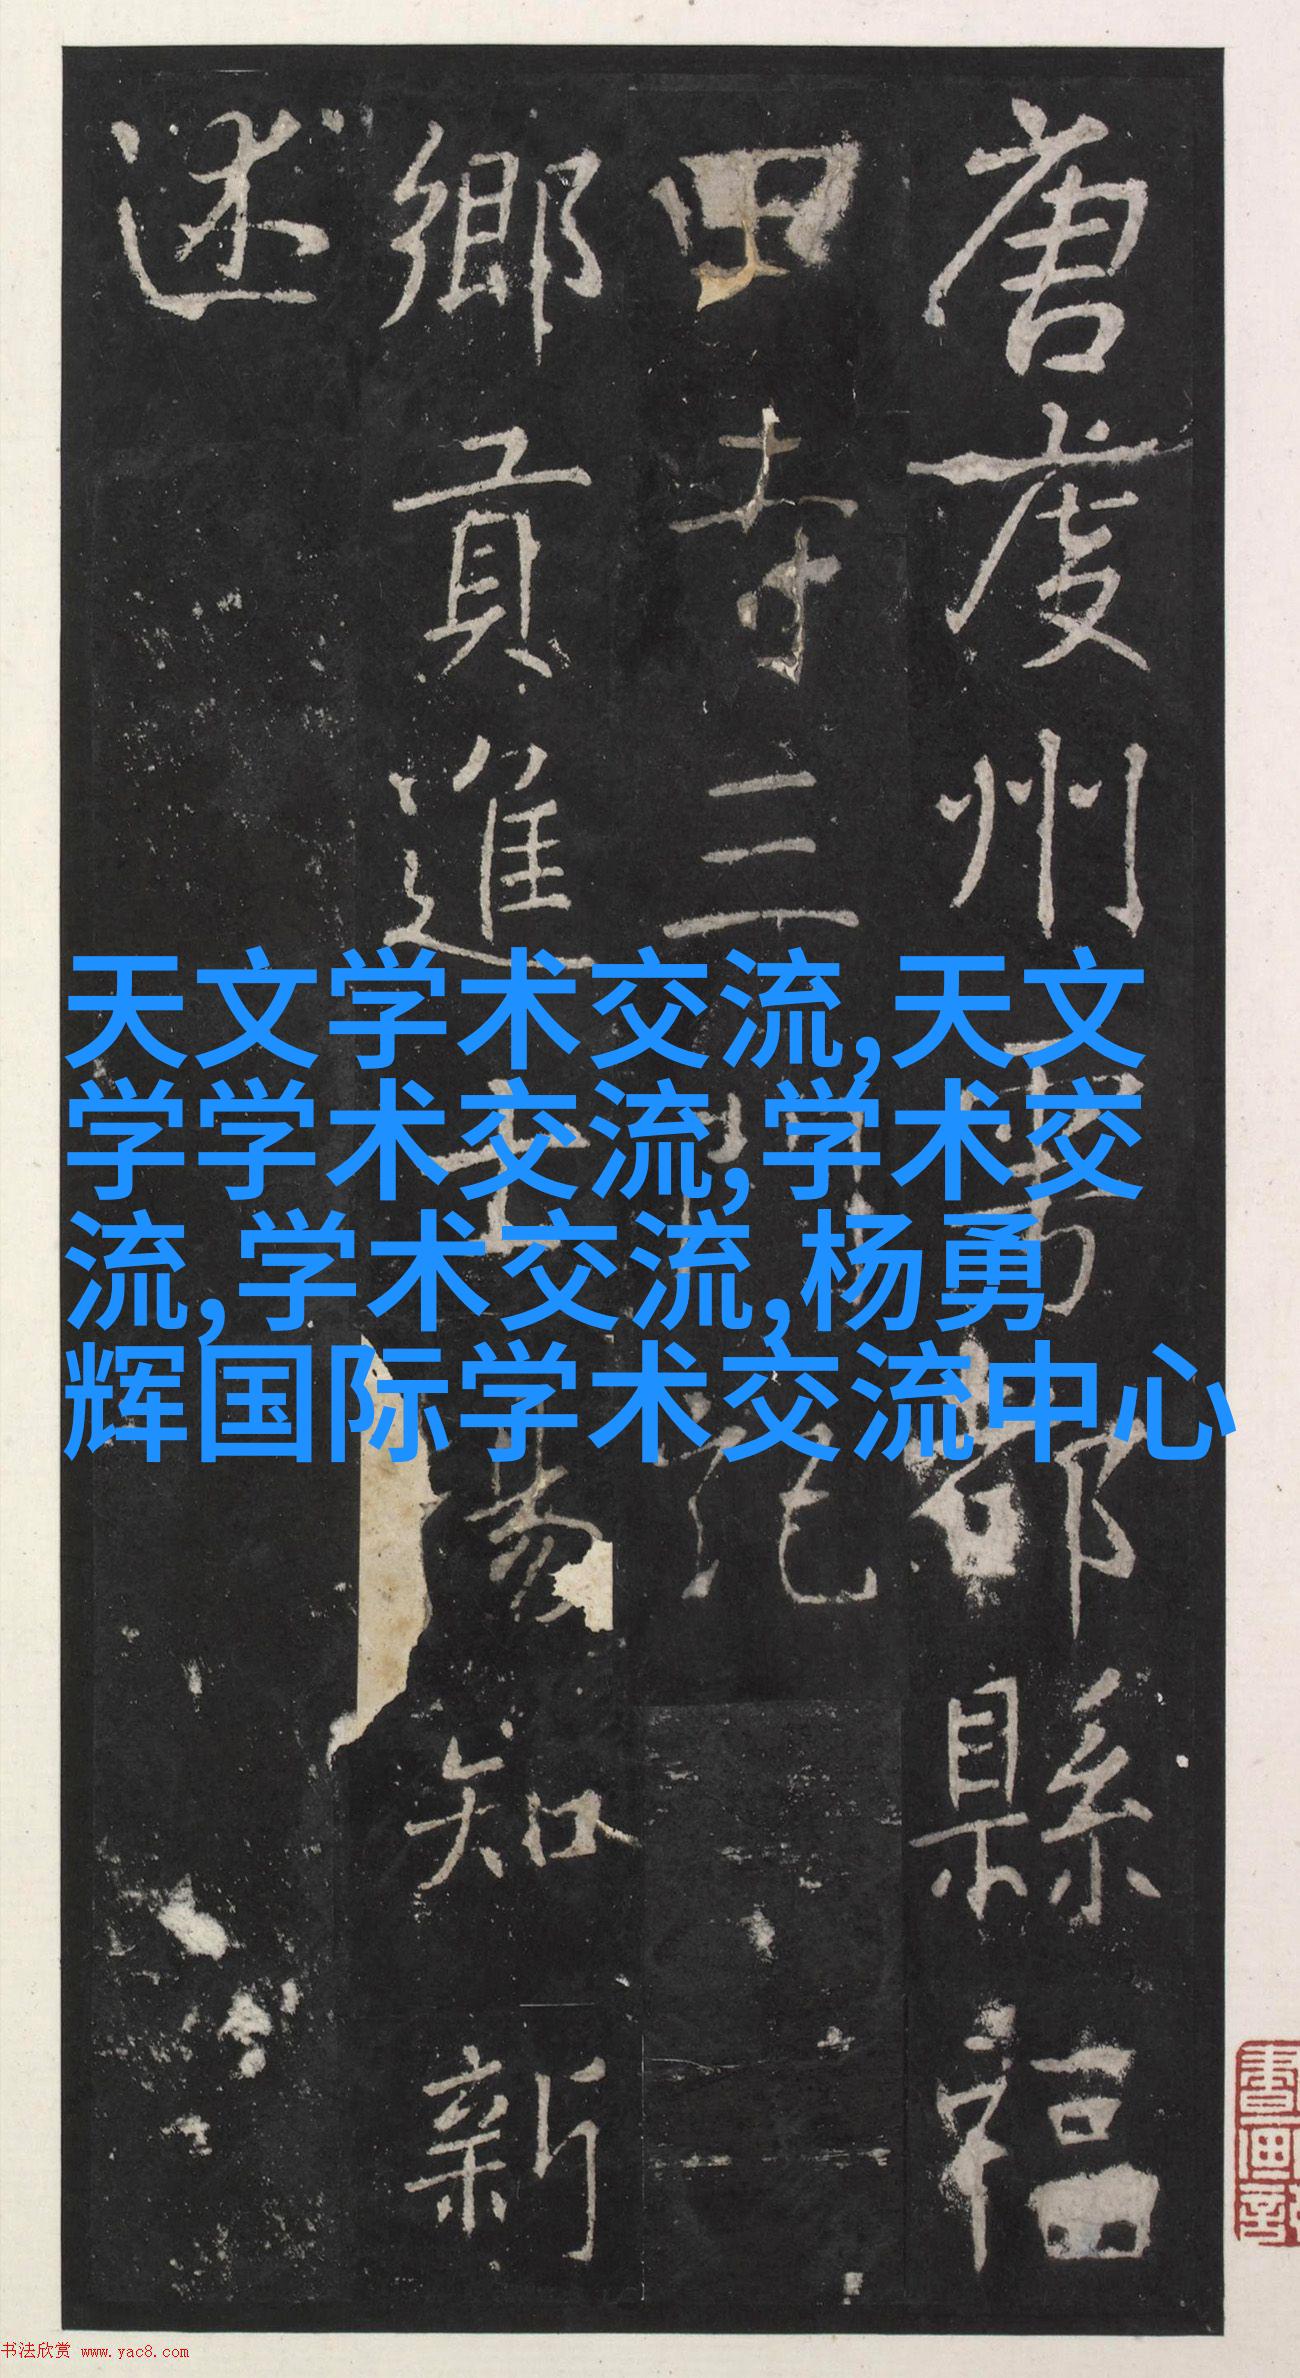 唐虔州雩都縣福
田寺三門記
鄉貢進士楊知新
述
天文学术交流,天文
学学术交流,学术交
流,学术交流,杨勇
辉国际学术交流中心
书法欣赏 www.yac8.com